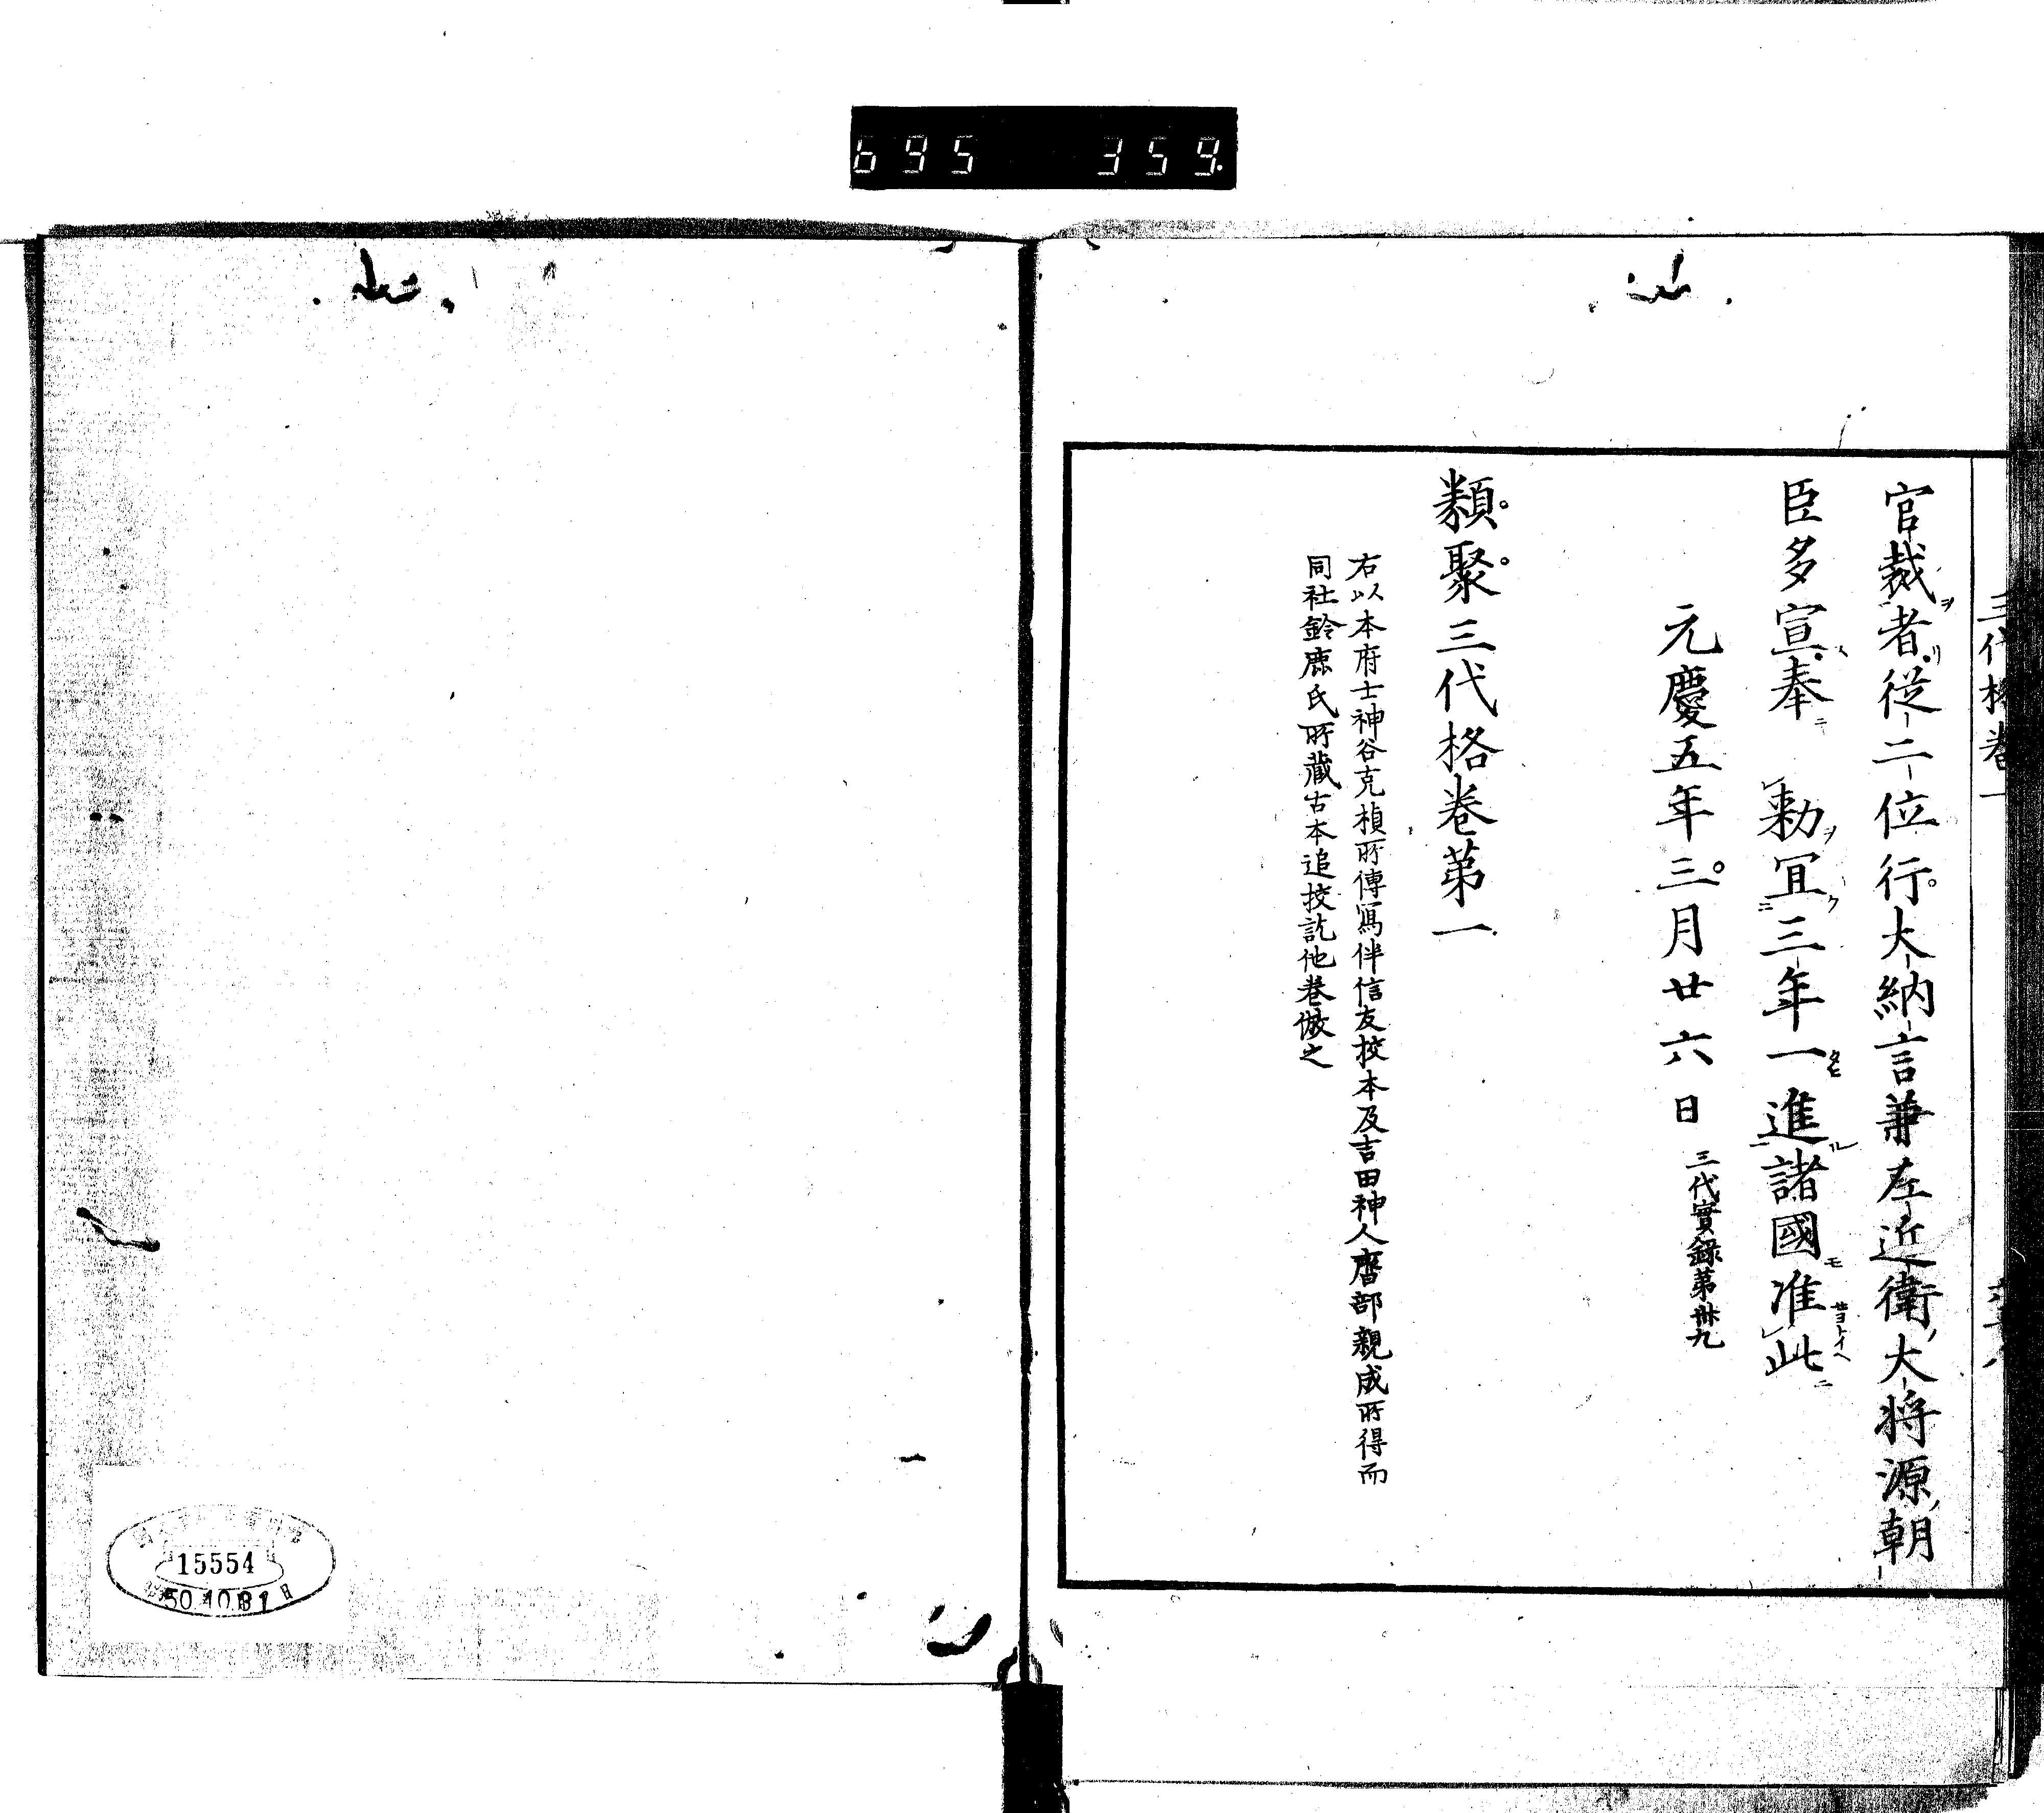 695 359.
三代格卷一
官裁者從二位行大納言兼左近衛大将源朝
臣多宣奉 勅冝三年一進諸國准此
元慶五年三月廿六日 三代實錄第卅九
類聚三代格卷第一
右以本府士神谷克楨所傳寫伴信友挍本及吉田神人磨部親成所得而
同社鈴鹿氏所藏古本追挍訖他卷倣之
15554
50.10.31